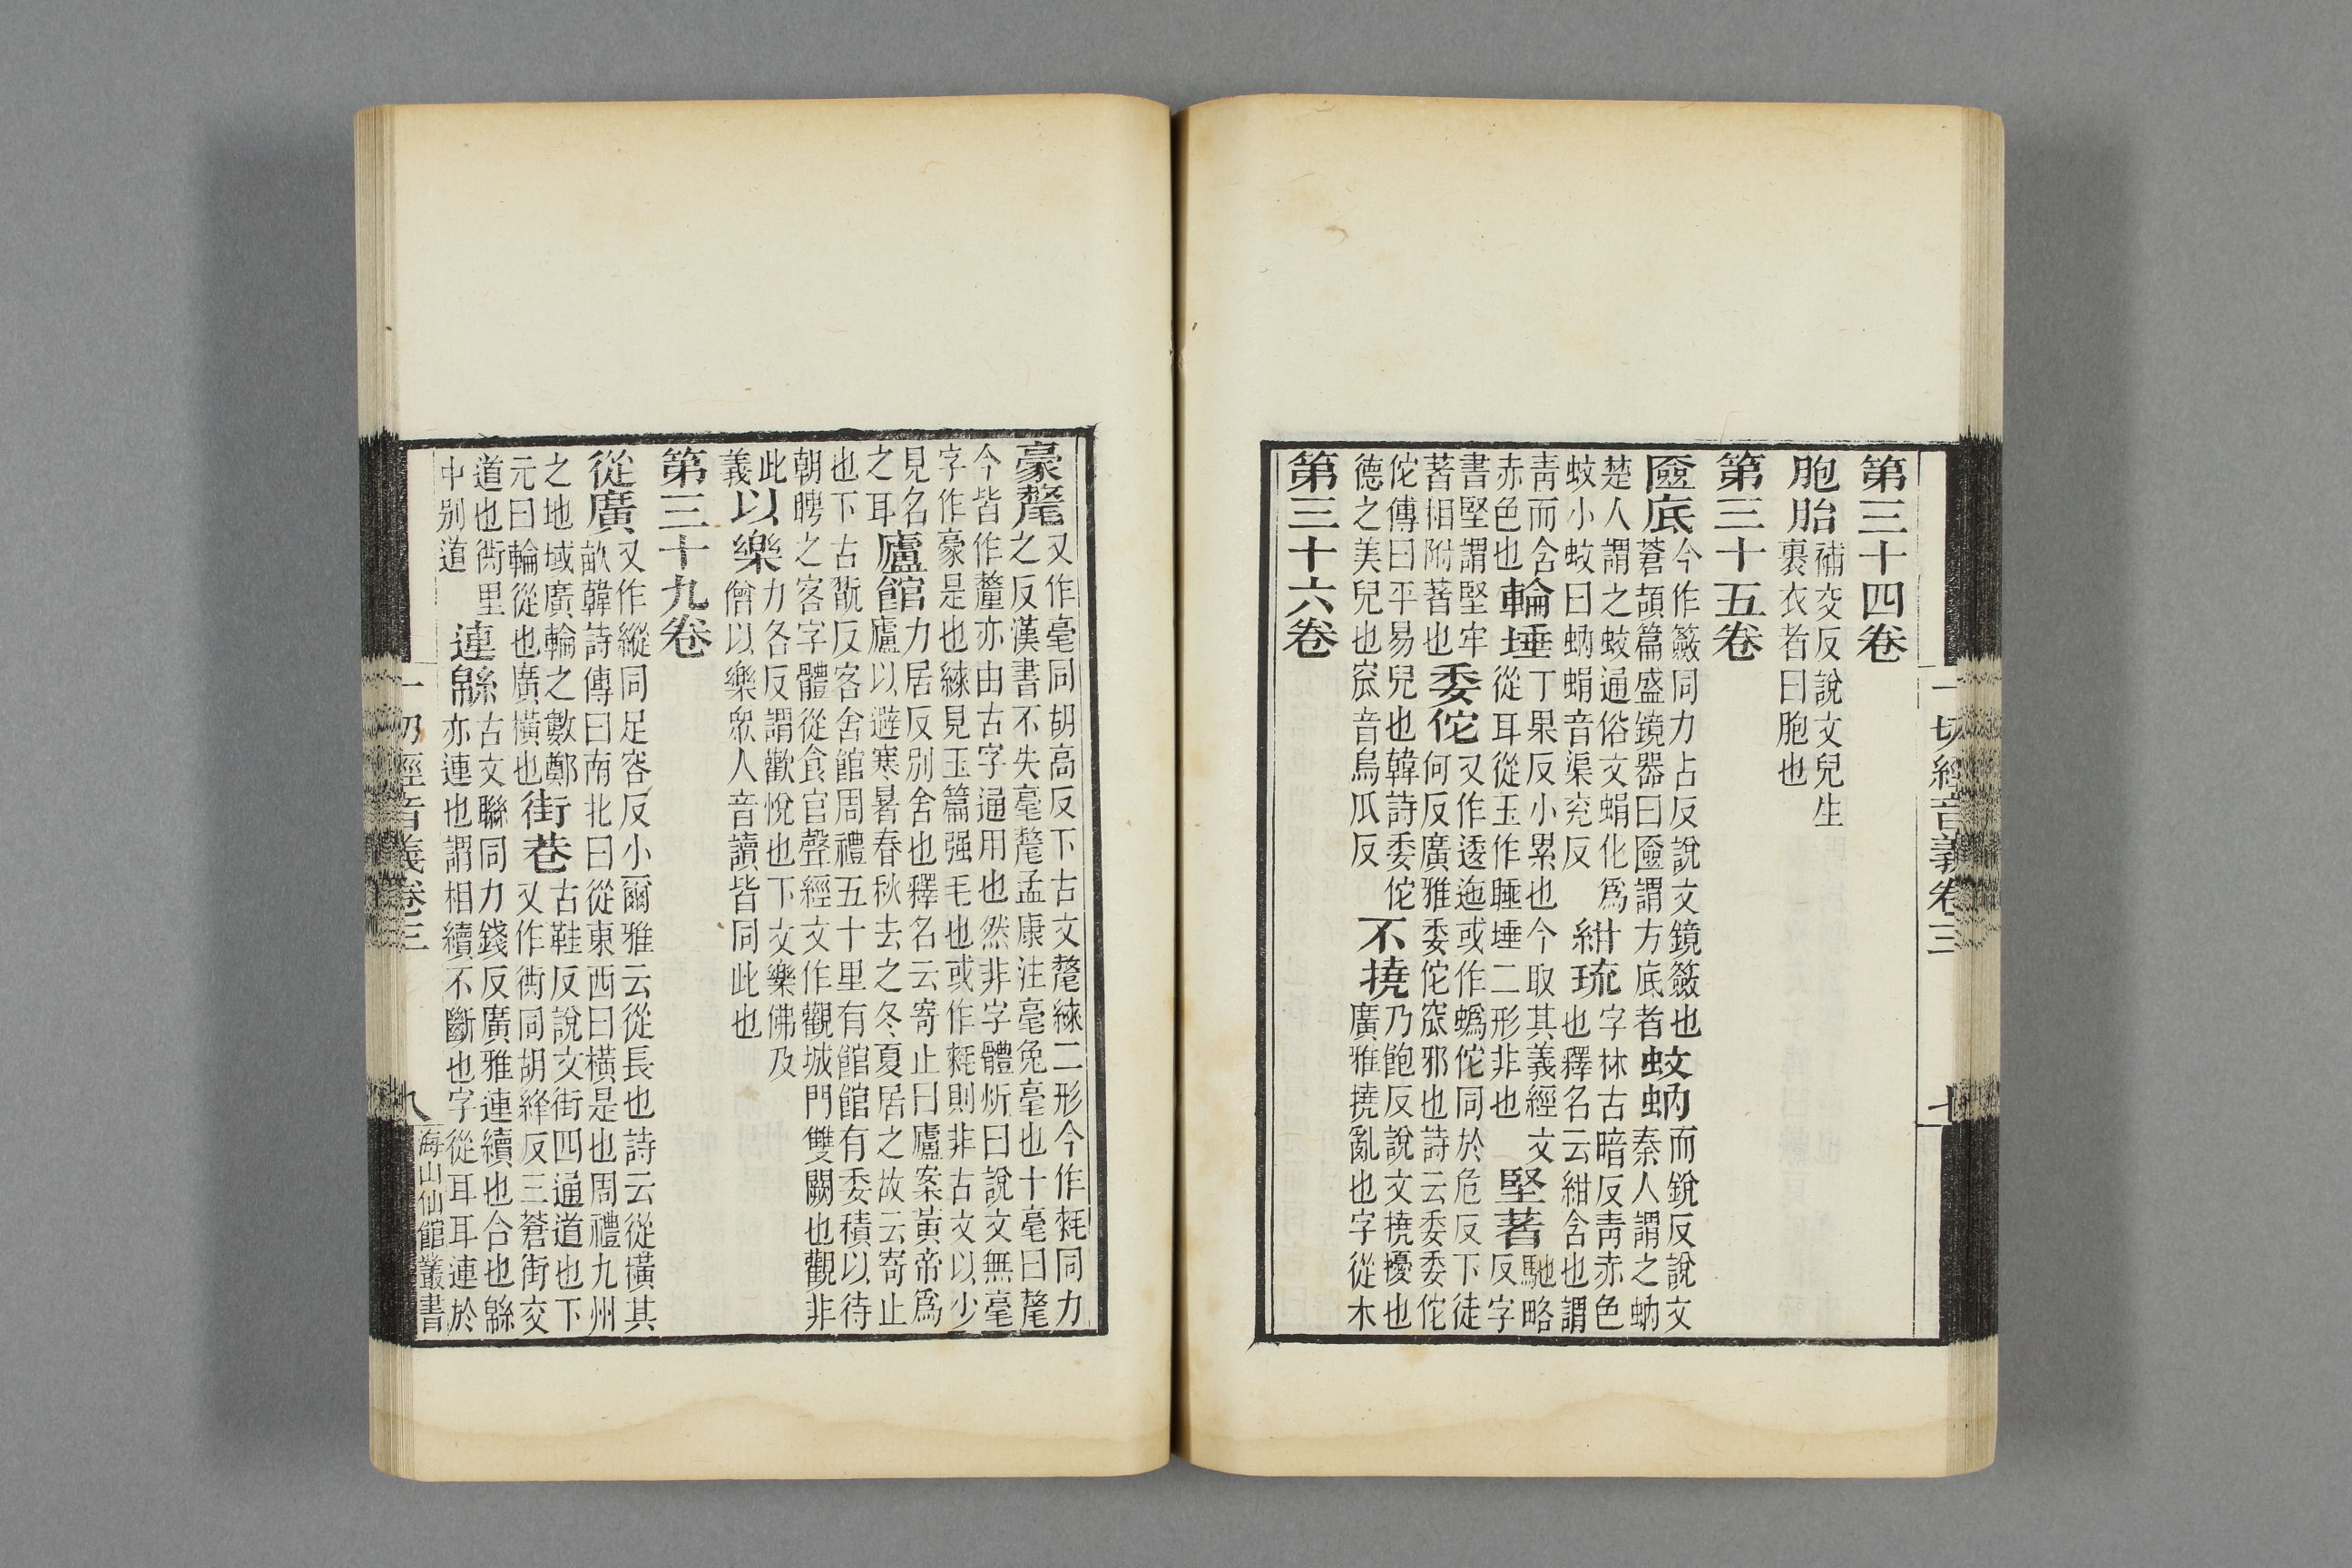 一切經音義卷三
七
第三十四卷
胞胎補交反說文兒生
裹衣者曰胞也
第三十五卷
匳底今作籢同力占反說文鏡籢也
蒼頡篇盛鏡器曰匳謂方底者
蚊蚋而銳反說文
秦人謂之蚋
楚人謂之蚊通俗文蜎化爲
蚊小蚊曰蚋蜎音渠兖反
紺琉字林古暗反靑赤色
也釋名云紺含也謂
靑而含
赤色也
輪埵丁果反小累也今取其義經文
從耳從玉作睡埵二形非也
堅著馳略
反字
書堅謂堅牢
著相附著也
委佗又作逶迤或作蟡佗同於危反下徒
何反廣雅委佗窊邪也詩云委委佗
佗傳曰平易皃也韓詩委佗
德之美皃也窊音烏瓜反
不撓乃飽反說文撓擾也
廣雅撓亂也字從木
第三十六卷
豪氂又作毫同胡高反下古文氂練二形今作耗同力
之反漢書不失毫氂孟康注毫兔毫也十毫曰氂
今皆作釐亦由古字通用也然非字體炘曰說文無毫
字作豪是也練見玉篇强毛也或作耗則非古文以少
見名
之耳
廬館力居反別舍也釋名云寄止曰廬案黃帝爲
廬以避寒暑春秋去之冬夏居之故云寄止
也下古翫反客舍館周禮五十里有館館有委積以待
朝聘之客字體從食官聲經文作觀城門雙闕也觀非
此
義
以樂力各反謂歡悅也下文樂佛及
僧以樂衆人音讀皆同此也
第三十九卷
從廣又作縱同足容反小爾雅云從長也詩云從橫其
畝韓詩傳曰南北曰從東西曰橫是也周禮九州
之地域廣輪之數鄭
元曰輪從也廣橫也
街巷古鞋反說文街四通道也下
又作衖同胡絳反三蒼街交
道也衖里
中別道
連緜古文聯同力錢反廣雅連續也合也緜
亦連也謂相續不斷也字從耳耳連於
一切經音義卷三
八
海山仙館叢書